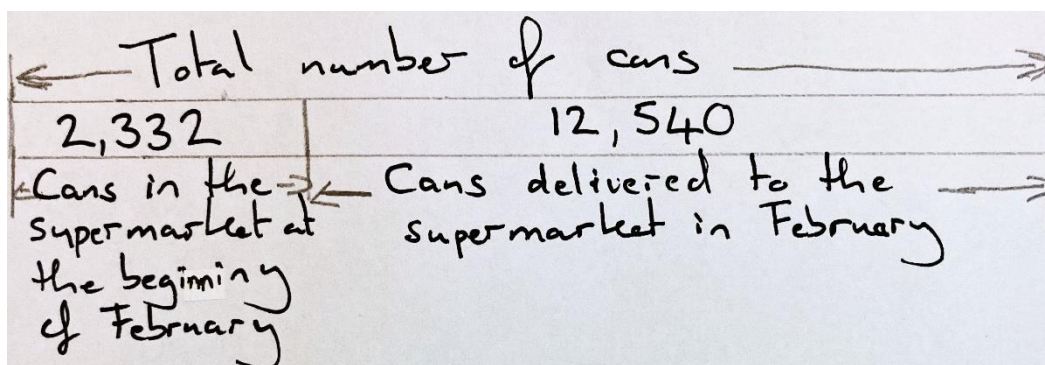 Total number of cans
2,332
12,540
Cans in the
supermarket at
the beginning
of February
Cans delivered to the
supermarket in February